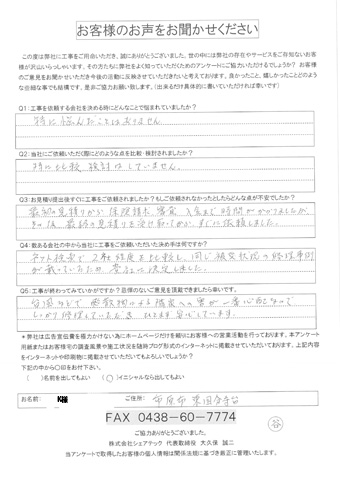 お客様のお声をお聞かせください
この度は弊社に工事をご用命いただき、誠にありがとうございました。世の中には弊社の存在やサービスをご存知ないお客
様が沢山いらっしゃいます。その方たちに弊社をよく知っていただくためのアンケートにご協力いただけるでしょうか？ お客様
のご意見をお聞かせいただき今後の活動に反映させていただきたいと考えております。良かったこと、嬉しかったことどのよう
な些細な事でも結構です。是非ご協力お願い致します。(出来るだけ具体的に書いていただければ幸いです)
Q1:工事を依頼する会社を決める時にどんなことで悩まれていましたか？
特に悩んだことはありません
Q2:当社にご依頼いただく際にどのような点を比較・検討されましたか？
特に比較、検討はしていません。
Q3:お見積り提出後すぐに工事をご依頼されましたか？もしご依頼されなかったとしたらどんな点が不安でしたか？
最初の見積りから、保険請求、審査、入金まで時間がかかりましたが、
その後、最終の見積りを受け取ってから、すぐに依頼しました。
Q4:数ある会社の中から当社に工事をご依頼いただいた決め手は何ですか？
ネット検索で2社程度を比較し、同じ被災状況の修理事例
が載っていたため、貴社に決定しました。
Q5:工事が終わってみていかがですか？忌憚のないご意見を頂戴できましたら幸いです。
台風などで
しっかり修理していただき
＊弊社は広告宣伝費を極力かけない為にホームページだけを頼りにお客様への営業活動を行っております。本アンケート
用紙またはお客様宅の調査風景や施工状況を随時ブログ形式でインターネットに掲載させていただいております。上記内容
をインターネットや印刷物に掲載させていただいてもよろしいでしょうか？
下記の中から〇印をお付け下さい。
( )名前を出してもよい (○)イニシャルなら出してもよい
お名前: K様 ご住所: 市原市 東国分寺台
FAX 0438-60-7774
ご協力ありがとうございました。
株式会社シェアテック 代表取締役 大久保 誠二
当アンケートで取得したお客様の個人情報は関係法規に基づき厳正に管理いたします。